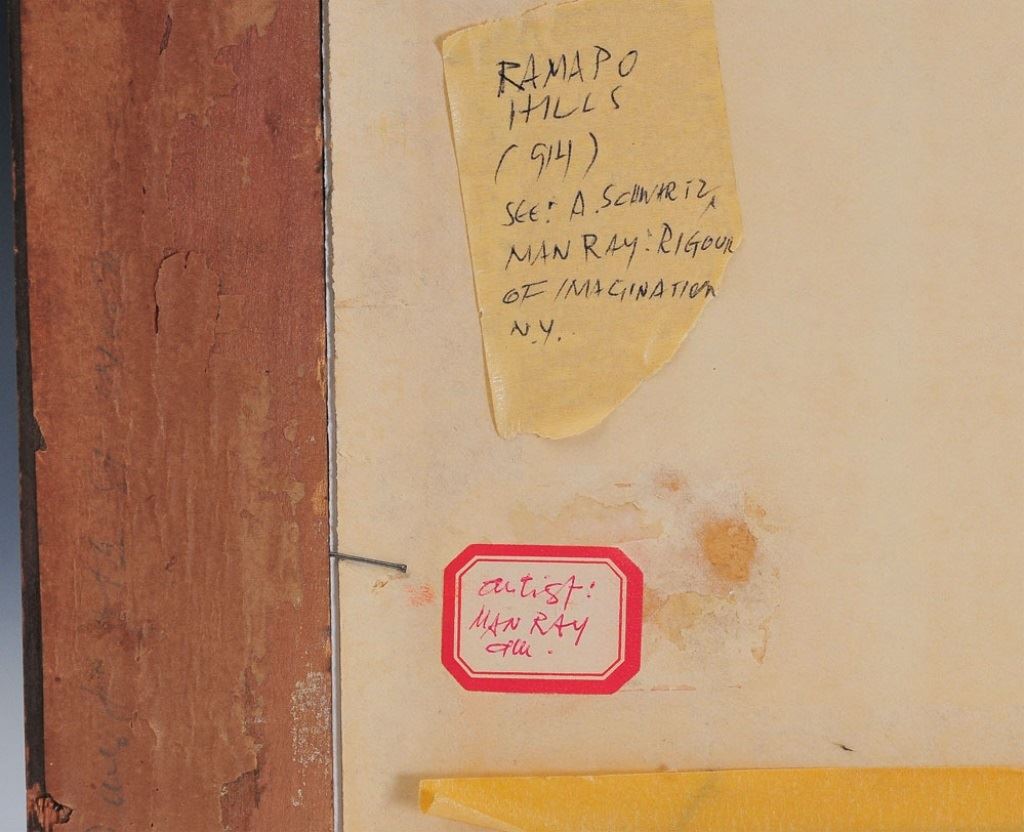 RAMAPO
HILLS
(914)
SEE: A. SCHWARTZ,
MAN RAY: RIGOUR
OF IMAGINATION
N.Y.
artist:
MAN RAY